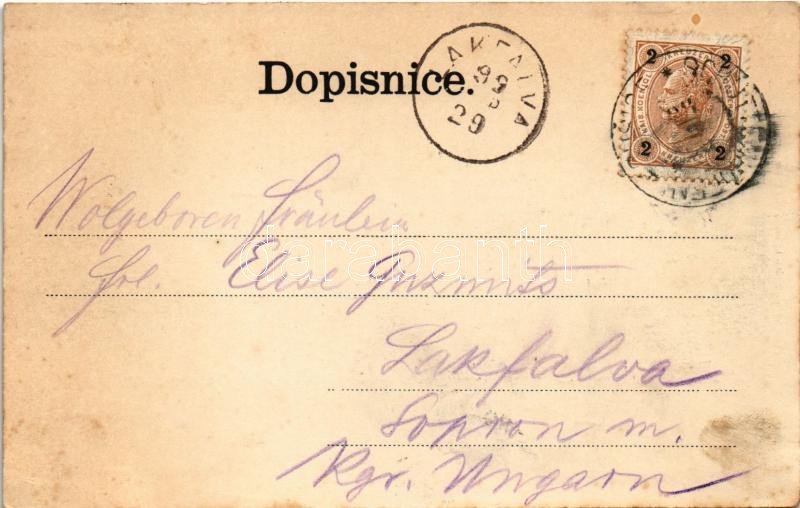 Dopisnice.
LAKFALVA
99
29
2 2
2 2
Wolgeboren Fräulein
darabanth
Frl. Elise Guzmits
Lakfalva
Sopron m.
Kgr. Ungarn